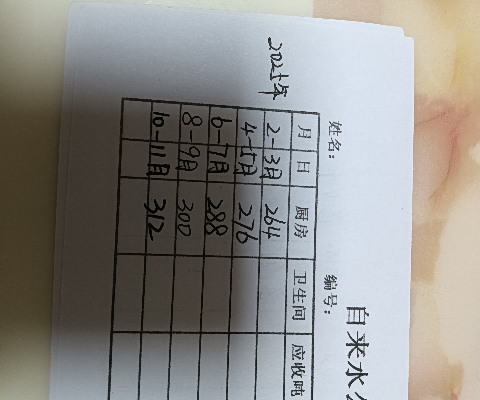 自来水
姓名： 编号：
2025年
月 日 厨房 卫生间 应收吨
2-3月 264
4-5月 276
6-7月 288
8-9月 300
10-11月 312